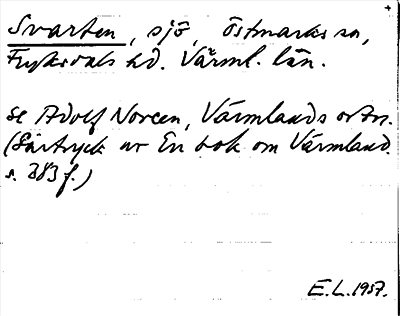 Svarten, sjö, Östmarks sn,
Fryksdals hd. Värml. län.
se Adolf Noreen, Värmlands ortn.
(Särtryck ur En bok om Värmland
s. 383 f.)
E.L. 1957.